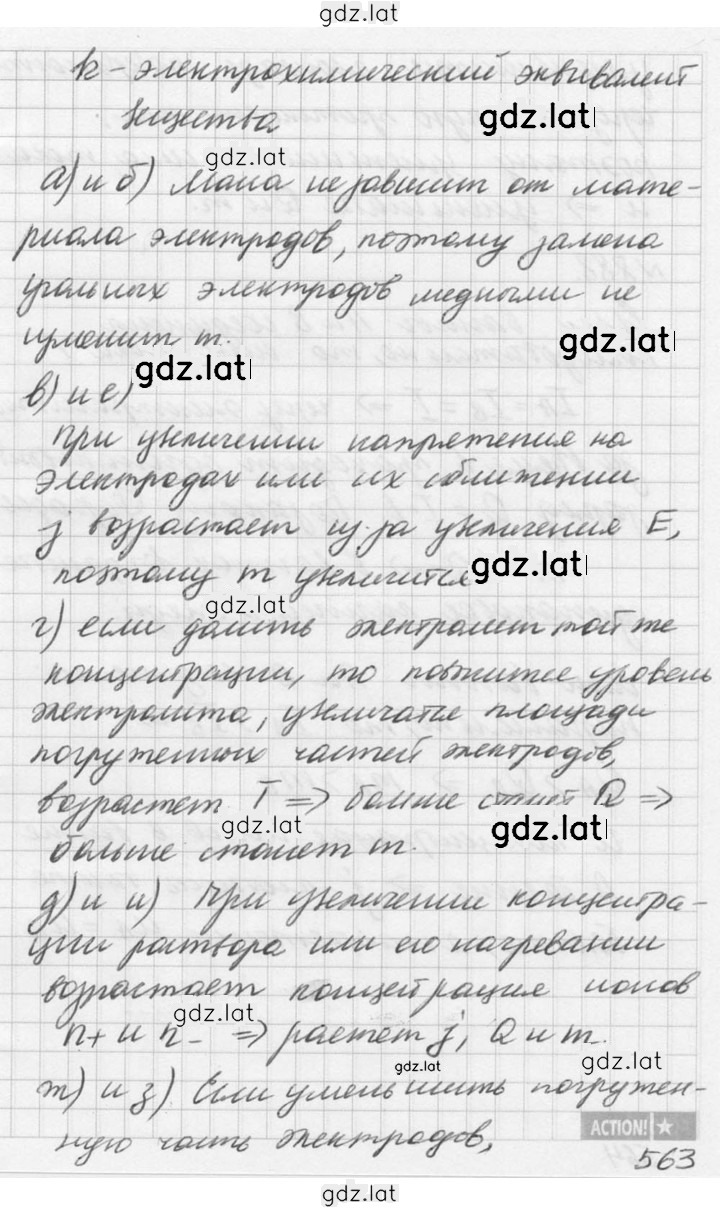 gdz.lat
k - электрохимический эквивалент
вещества
gdz.lat
gdz.lat
а) и б) Масса не зависит от мате-
риала электродов, поэтому замена
угольных электродов медными не
изменит m.
gdz.lat
gdz.lat
в) и е)
При увеличении напряжения на
электродах или их сближении
j возрастает из-за увеличения E,
поэтому m увеличится
gdz.lat
gdz.lat
г) если долить электролит той же
концентрации, то повысится уровень
электролита, увеличатся площади
погруженных частей электродов,
возрастет I => больше станет Q =>
gdz.lat
gdz.lat
больше станет m.
д) и и) При увеличении концентра-
ции раствора или его нагревании
возрастает концентрация ионов
gdz.lat
n+ и n- => растет j, Q и m.
gdz.lat
gdz.lat
ж) и з) Если уменьшить погружен-
ную часть электродов,
ACTION!
563
gdz.lat